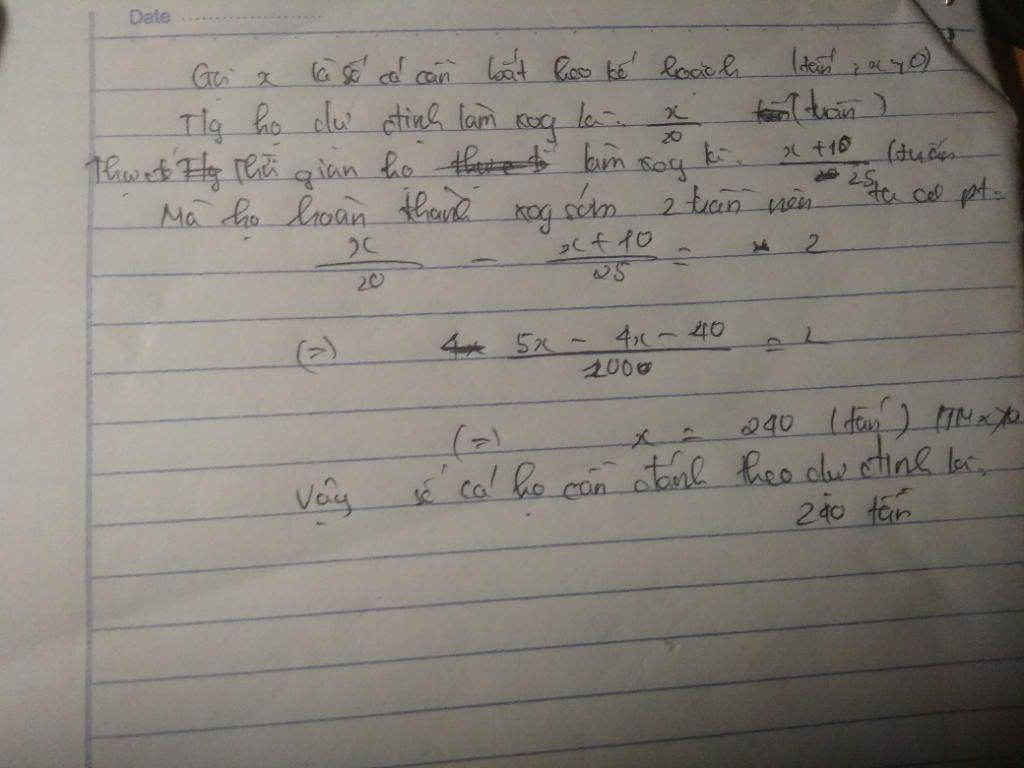 Date
Gọi x là số cá cần bắt theo kế hoạch (tấn ; x > 0)
Tlg họ dự định làm xog là: x/20 (tuần)
Thực tế Thời gian họ làm xog là: x + 10/25 (tuần
Mà họ hoàn thành xog sớm 2 tuần nên ta có pt:
x/20 - x + 10/25 = 2
(=) 5x - 4x - 40/100 = 2
(=) x = 240 (tấn) (TM x > 0
Vậy số cá họ cần đánh theo dự định là:
240 tấn